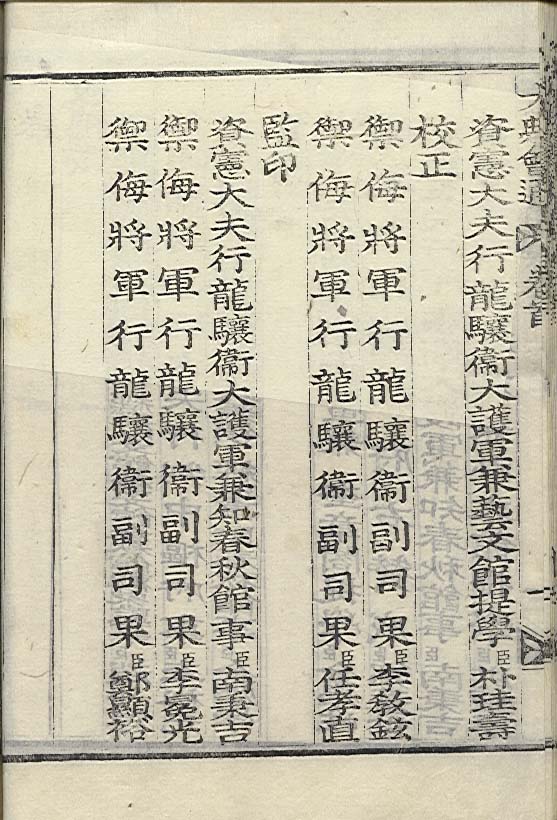 大典會通 卷首 一
資憲大夫行龍驤衛大護軍兼藝文館提學臣朴珪壽
校正
禦侮將軍行龍驤衛副司果臣李敎鉉
禦侮將軍行龍驤衛副司果臣任孝直
監印
資憲大夫行龍驤衛大護軍兼知春秋館事臣南秉吉
禦侮將軍行龍驤衛副司果臣李冕光
禦侮將軍行龍驤衛副司果臣鄭顯裕